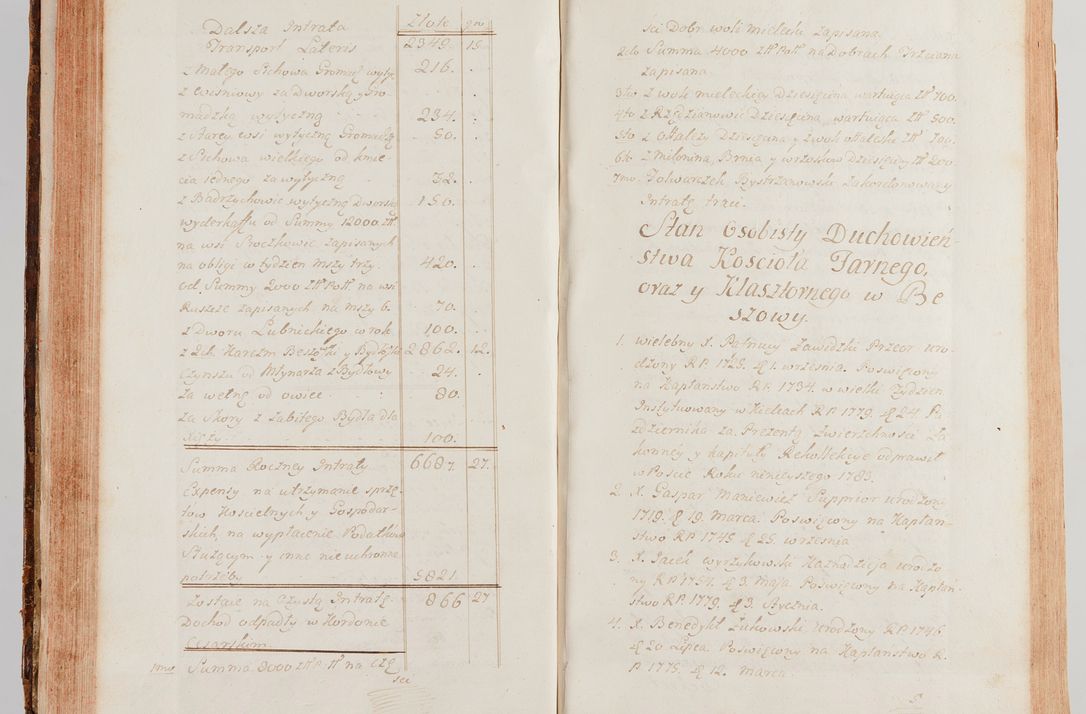 Dalsza Intrata Złote gro
Transport Lateris 2349. 15
z Małego Sichowa Gromadz: wytycz 216. .
z Wiśniowy za Dworską y Gro
madzką wytyczną 234. .
z Starey wsi wytyczną Gromadzką 50. .
z Sichowa wielkiego od kmie-
cia jednego za wytyczną 32. .
z Badrzychowic wytyczną Dworską 150. .
wyderkaffu od Summy 12000 zł
na wsi Sroczkowie zapisanych
na obligi w tydzien mszy trzy. 420. .
od Summy 2000 złt Poll na wsi
Ruszcze zapisanych na mszy 6. 70. .
z Dworu Łubnickiego w rok 100. .
Karczm Beszowki y Bydłow 2862. 12.
Czynszu od Młynarza z Bydłowy 24. .
za wełnę od owiec 80. .
za Skory z zabitego Bydła dla
xięży 100.
Summa Roczney Intraty 6687. 27.
Expensy na utrzymanie sprzę-
tow Koscielnych y Gospodar-
skich, na wypłacenie Podatkow
Służącym y inne nieuchronne
potrzeby 5821
Zostaie na czystą Intratę 866 27
Dochod odpadły w Kordonie
Cesarskim.
1mo Summa 8000 zł na czę
sci
sci Dobr woli mielecki zapisana.
2do Summa 4000 złt Poll na Dobrach Trzciana
zapisana
3tio z woli mieleckią Dziesięcina wartuiąca zł 700.
4to z Rzędzianowic Dziesięcina wartuiąca zł 500.
5to z Dziesięcina y zwoli zł 700.
6to z Brnia y wrzosow Dziesięciny zł 200.
7mo Folwarczek Bystrzonowski zakordonowany
Intratę traci.
Stan Osobisty Duchowień-
stwa Koscioła Farnego,
oraz y Klasztornego w Be
szowy.
1. Wielebny X. Patrucy Zawidzki Przeor uro-
dzony R.P. 1725. d 1. września. Poswięcony
na Kapłaństwo R.P. 1754. w wielki Tydzien
Instytuowany w Kielcach R.P. 1779. d 24. Pa-
zdziernika za Prezentą zwierzchnosci Za
konney y Kapituły Rekollekcye odprawił
w Poscie Roku ninieyszego 1783.
2. X. Gaspar Maniewicz Suppior urodzony
1719. d 19. Marca. Poswięcony na Kapłan-
stwo R.P. 1745 d 25. września
3. X. Jacek wyrzykowski Kaznodzieja urodzo
ny R.P. 1754. d 3. Maja. Poswięcony na Kapłań-
stwo R.P. 1779. d 3. Stycznia.
4. X. Benedykt Zukowski Urodzony R.P. 1746
d 20 Lipca. Poswięcony na Kapłaństwo R.
P. 1775. d 12. Marca.
5.